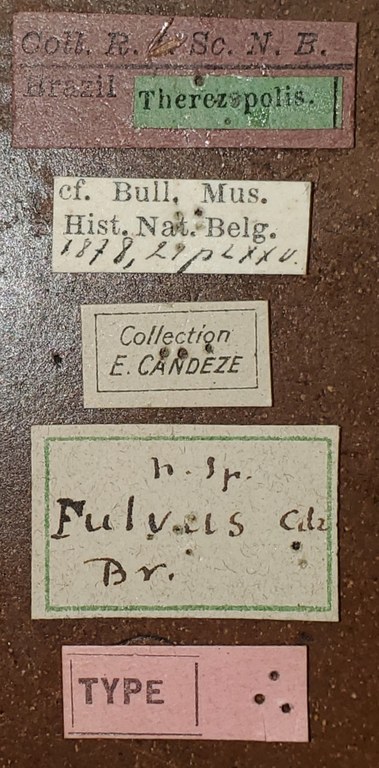 Coll. R. I. Sc. N. B.
Brazil
Therezopolis.
cf. Bull. Mus.
Hist. Nat. Belg.
1878, 21 p LXXV.
Collection
E. CANDEZE
n. sp.
Fulvus Cdz
Br.
TYPE